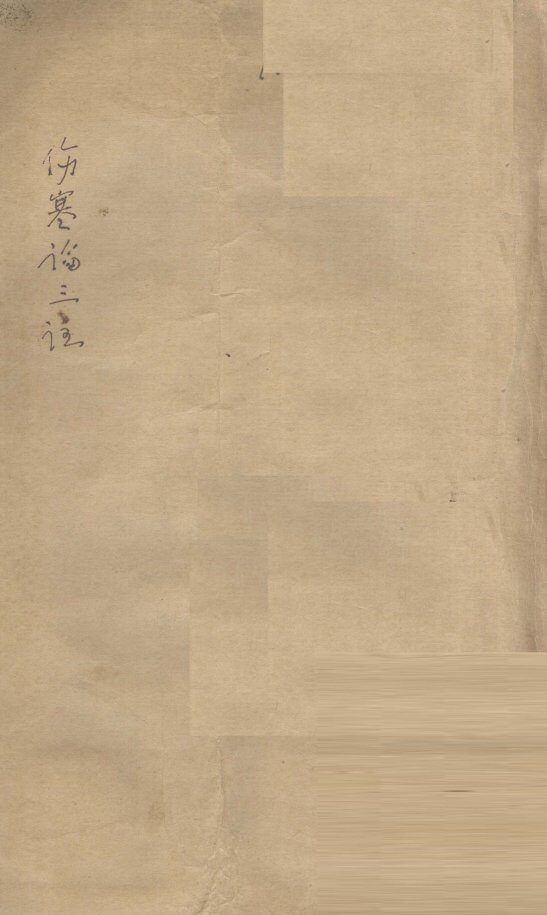 伤寒论三注